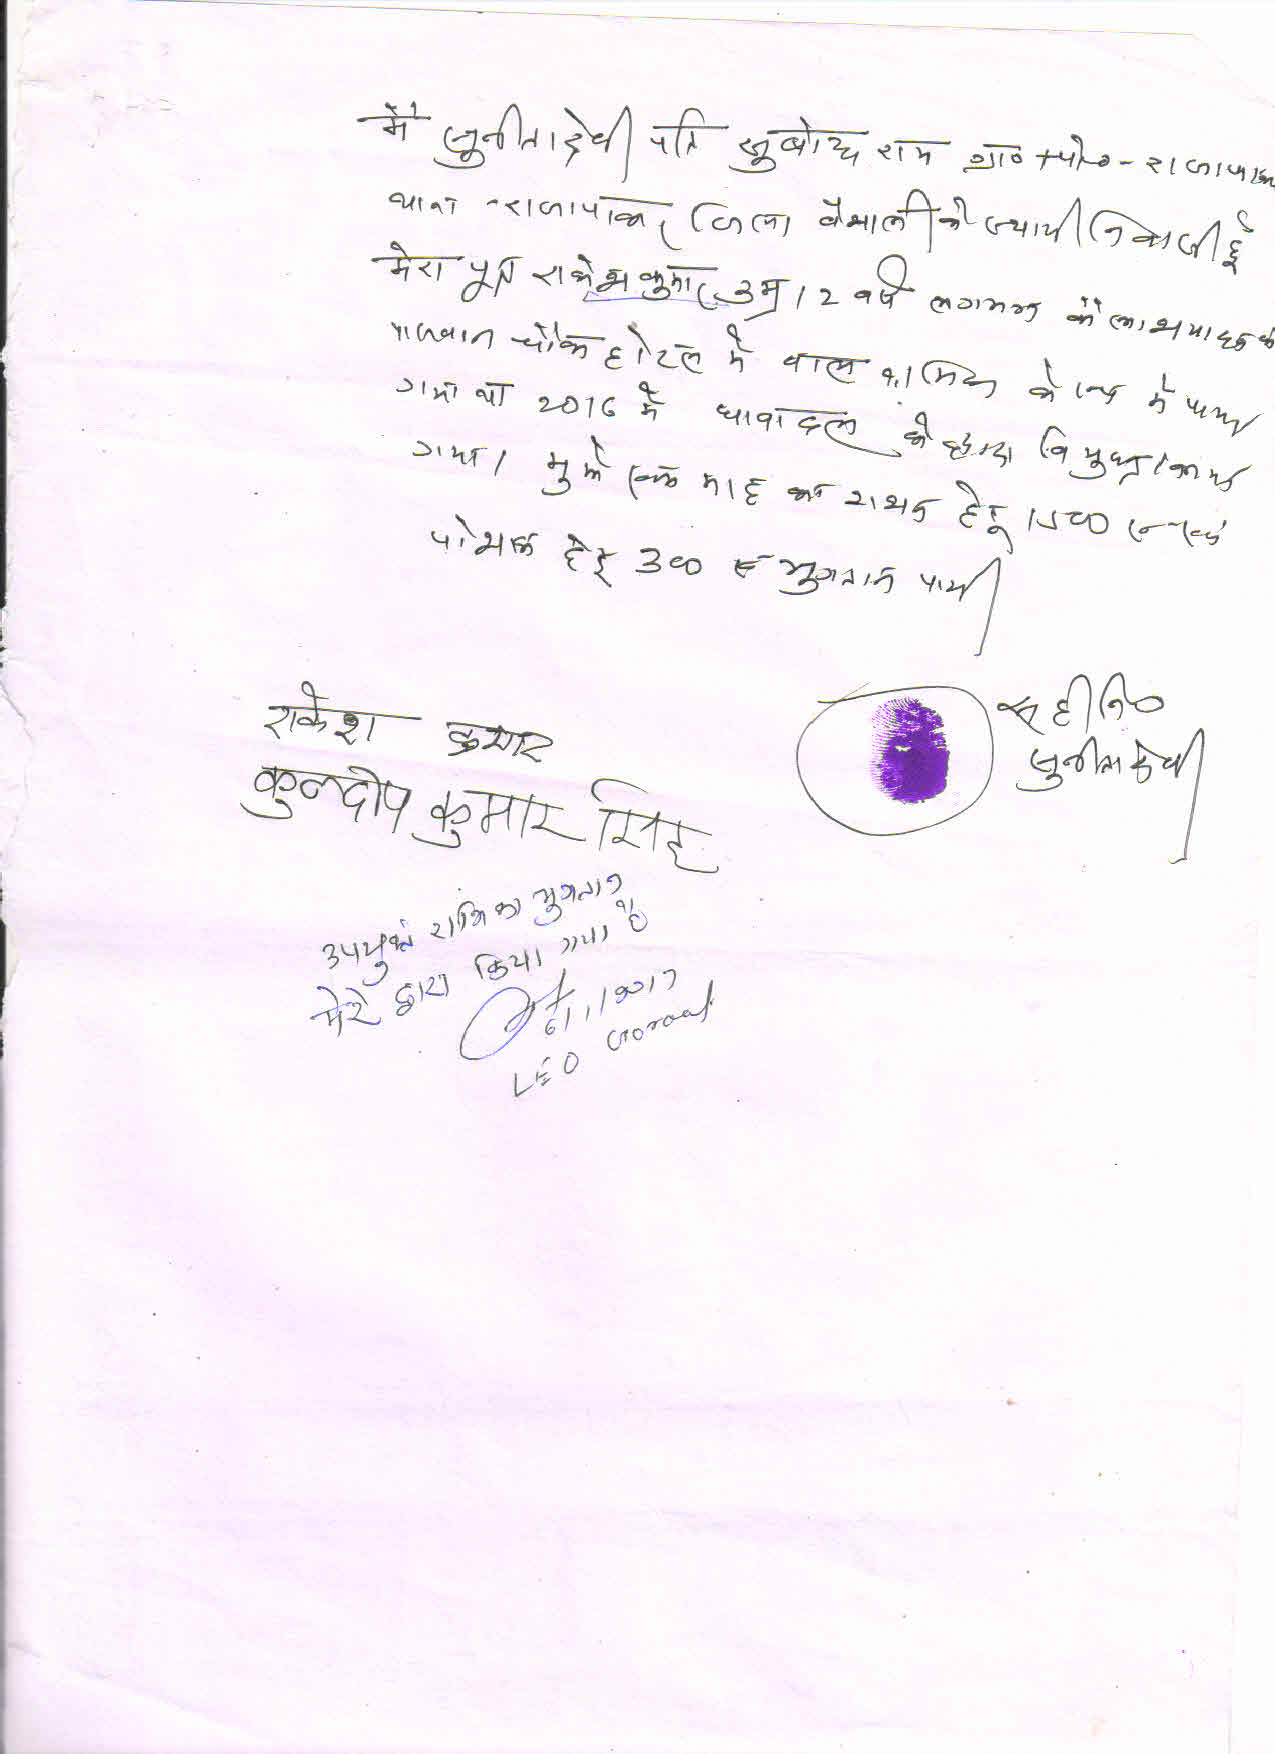 मैं सुनीता देवी पति सुबोध राम ग्रा० + पो०- राजापाकर
थाना - राजापाकर, जिला वैशाली की स्थायी निवासी हूँ
मेरा पुत्र राकेश कुमार उम्र 12 वर्ष लगभग
चौक होटल में बाल श्रमिक के रूप में पाया
गया था 2016 में धावादल के द्वारा विमुक्त किया
गया। मुझे एक माह का राशन हेतु 1500
पोशाक हेतु 300 रू भुगतान पायी
सही नि०
सुनीता देवी
राकेश कुमार
कुलदीप कुमार सिंह
उपर्युक्त राशि का भुगतान
मेरे द्वारा किया गया है
6/1/2017
LEO